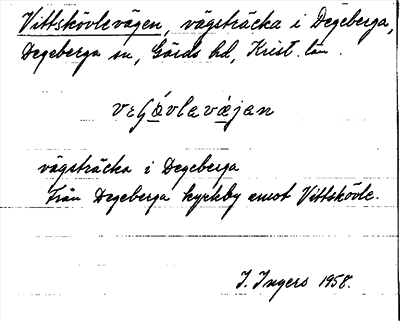 Vittskövlevägen, vägsträcka i Degeberga,
Degeberga sn, Gärds hd, Krist. län.
vägsträcka i Degeberga
Från Degeberga kyrkby emot Vittskövle.
I. Ingers 1958.